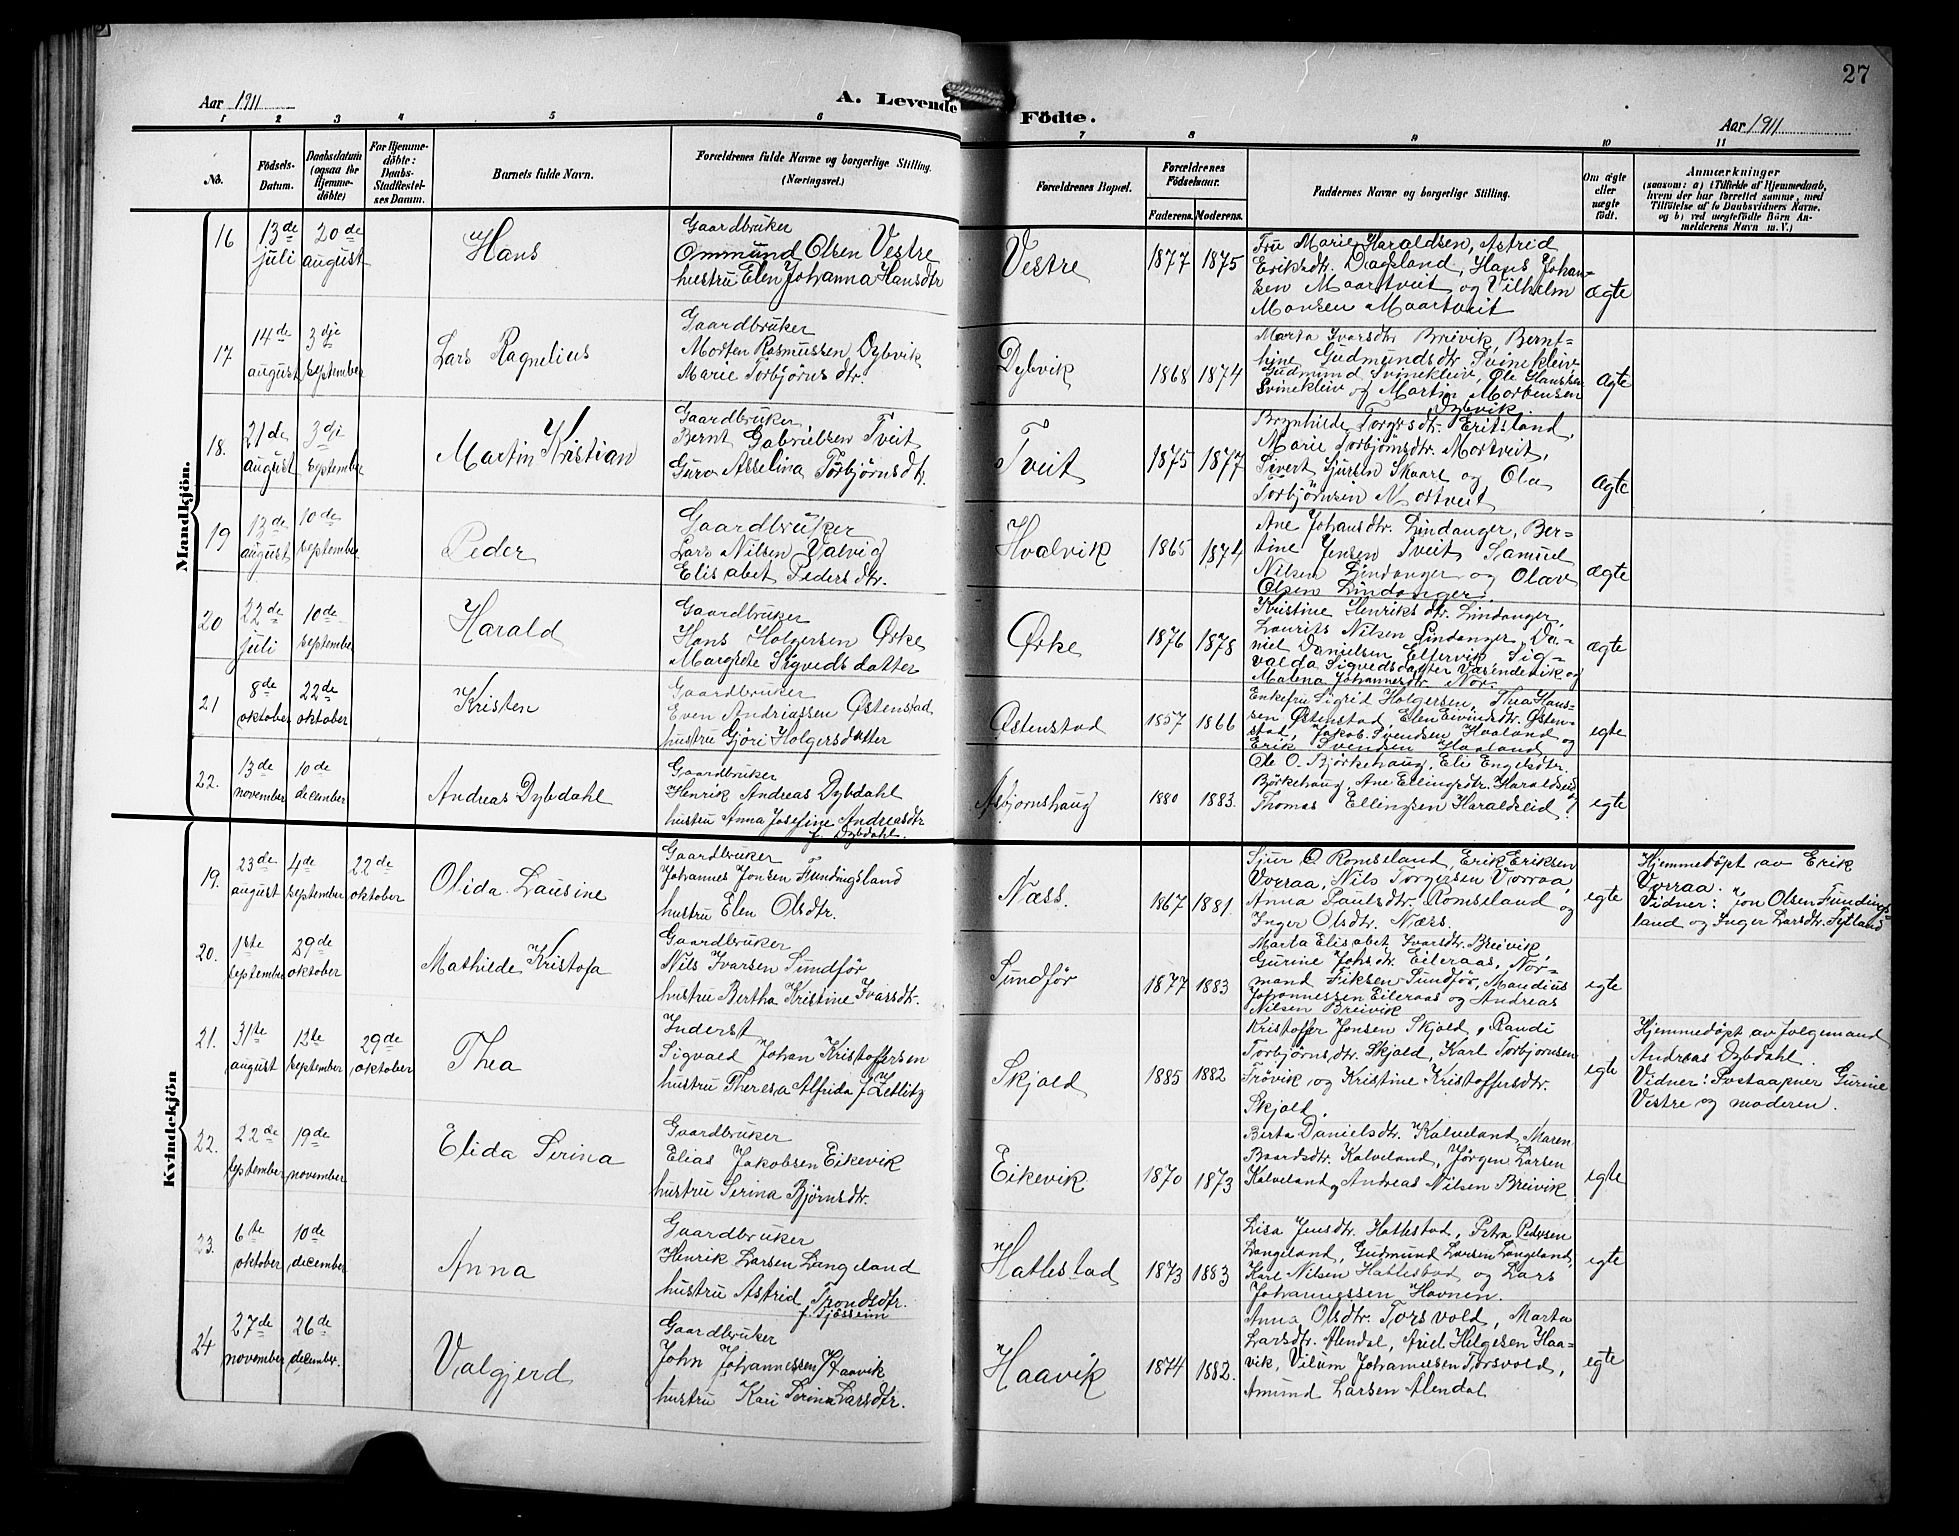 27
Aar 1911
A. Levende Födte.
Aar 1911
1 2 3 4 5 6 7 8 9 10 11
No.
Födsels-Datum.
Daabsdatum (ogsaa for Hjemme-döbte)
For Hjemme-döbte: Daabs-Stadfæstel-ses Datum.
Barnets fulde Navn.
Forældrenes fulde Navne og borgerlige Stilling. (Næringsvei.)
Forældrenes Bopæl.
Forældrenes Födselsaar.
Faderens. Moderens.
Faddernes Navne og borgerlige Stilling.
Om ægte eller uægte födt.
Anmærkninger
(saasom: a) i Tilfælde af Hjemmedaab,
hvem der har forrettet samme, med
Tilföielse af to Daabsvidners Navne.
og b) ved uegtefödte Börn An-
melderens Navn m. V.)
Mandkjön.
16
13de juli
20de august
Hans
Gaardbruker
Ommund Olsen Vestre
hustru Elen Johanna Hansdtr
Vestre
1877 1875
Fru Marie Haraldsen, Astrid
Eriksdtr. Dagsland, Hans Johan-
sen Maartveit og Vilhelm
Monsen Maartveit
ægte
17
14de august
3dje september
Lars Ragnelius
Gaardbruker
Morten Rasmussen Dybvik
Marie Torbjørnsdtr.
Dybvik
1868 1874
Marta Ivarsdtr Breivik, Bernt-
hine Gudmundsdtr. Svinekleiv
Gudmund Svinekleiv, Ole Hanssen
Svinekleiv og Martin Mortensen
Dybvik.
ægte
18.
21de august
3dje september
Martin Kristian
Gaardbruker
Bernt Gabrielsen Tveit
Guro Asselina Torbjørnsdtr.
Tveit
1875 1877
Brynhilde Torgersdtr. Eritsland,
Marie Torbjørnsdtr. Mortveit,
Sivert Sjursen Skaar og Ola
Torbjørnsen Nortveit
ægte
19
13de august
10de september
Peder
Gaardbruker
Lars Nilsen Valvig
Elisabet Pedersdtr.
Hvalvik
1865 1874
Ane Johansdtr. Lindanger, Ber-
tine Jensen Tveit Samuel
Nilsen Lindanger og Olav
Olsen Lindanger.
ægte
20
22de juli
10de september
Harald
Gaardbruker
Hans Holgersen Ørke
Margrete Sigvedsdatter
Ørke
1876 1878
Kristine Henriksdtr. Lindanger,
Laurits Nilsen Lindanger, Da-
niel Danielsen Elfervik, Sig-
valda Sigvedsdatter Vasendevik og
Malena Johannesdtr. Nor.
ægte
21
8de oktober
22de oktober
Kristen
Gaardbruker
Even Andreassen Østenstad
hustru Gjøri Holgersdatter
Østenstad
1857 1866
Enkefru Sigrid Holgersen, Thea Hans-
sen Østenstad, Elen Eivindsdtr. Østen-
stad, Jakob Svendsen Haaland og
Erik Svendsen Haaland
egte
22.
13de november
10de december
Andreas Dybdahl
Gaardbruker
Henrik Andreas Dybdahl
hustru Anna Josefine Andreasdtr
f. Dybdahl.
Asbjørnshaug
1880 1883.
Ole O. Bjørkehaug, Eli Engelsdtr.
Børkehaug, Ane Ellingsdtr. Haraldseid og
Thomas Ellingsen Haraldseid!
egte
Kvindekjön
19.
23de august
4de september
22de oktober
Olida Lausine
Gaardbruker
Johannes Jonsen Fundingsland
hustru Elen Olsdtr.
Næss.
1867 1881.
Sjur O Romseland, Erik Eriksen
Vorraa, Nils Torgersen Vorraa,
Anna Paulsdtr. Romseland og
Inger Olsdtr. Næss.
egte
Hjemmedøpt av Erik
Vorraa.
Vidner: Jon Olsen Fundings-
land og Inger Larsdtr. Tytland
20.
1ste september
29de oktober
Mathilde Kristofa
Gaardbruker
Nils Ivarsen Sundfør
hustru Bertha Kristine Ivarsdtr.
Sundfør
1877 1883
Marta Elisabet Ivarsdtr. Breivik,
Gurine Johsdtr. Eileraas, Nor-
mand Eiksen Sundfør, Mandius
Johannessen Eileraas og Andreas
Nilsen Breivik
egte
21.
31te august
12te september
29de oktober
Thea
Inderst
Sigvald Johan Kristoffersen
hustru Theresa Alfrida f Zetlitz
Skjold
1885 1882
Kristoffer Jonsen Skjold, Randi
Torbjørnsdtr. Skjold, Karl Torbjørnsen
Trøvik og Kristine Kristoffersdtr.
Skjold.
egte
Hjemmedøpt av Jolgemand
Andreas Dybdahl.
Vidner: Postaapner Gurine
Vestre og moderen.
22.
22de september
19de november
Elida Serina
Gaardbruker
Elias Jakobsen Eikevik
hustru Serina Bjørnsdtr.
Eikevik
1870 1873
Berta Danielsdtr. Kalveland, Maren
Baardsdtr. Kalveland, Jørgen Larsen
Kalveland og Andreas Nilsen Breivik
egte
23.
6te oktober
10de december
Anna
Gaardbruker
Henrik Larsen Langeland
hustru Astrid Trondsdtr.
f. Tjøsseim
Hatlestad
1873 1883
Lisa Jensdtr. Hatlestad, Petra Pedersen
Langeland, Gudmund Larsen Langeland,
Karl Nilsen Hatlestad og Lars
Johannessen Havnen.
egte
24
27de november
26de december.
Valgjerd
Gaardbruker
John Johannessen Haavik
hustru Kari Serina Larsdtr.
Haavik
1874 1882.
Anna Olsdtr. Torsvold, Marta
Larsdtr. Alendal, Ariel Helgesen Haa-
vik, Vilum Johannesen Torsvold,
Amund Larsen Alendal
egte